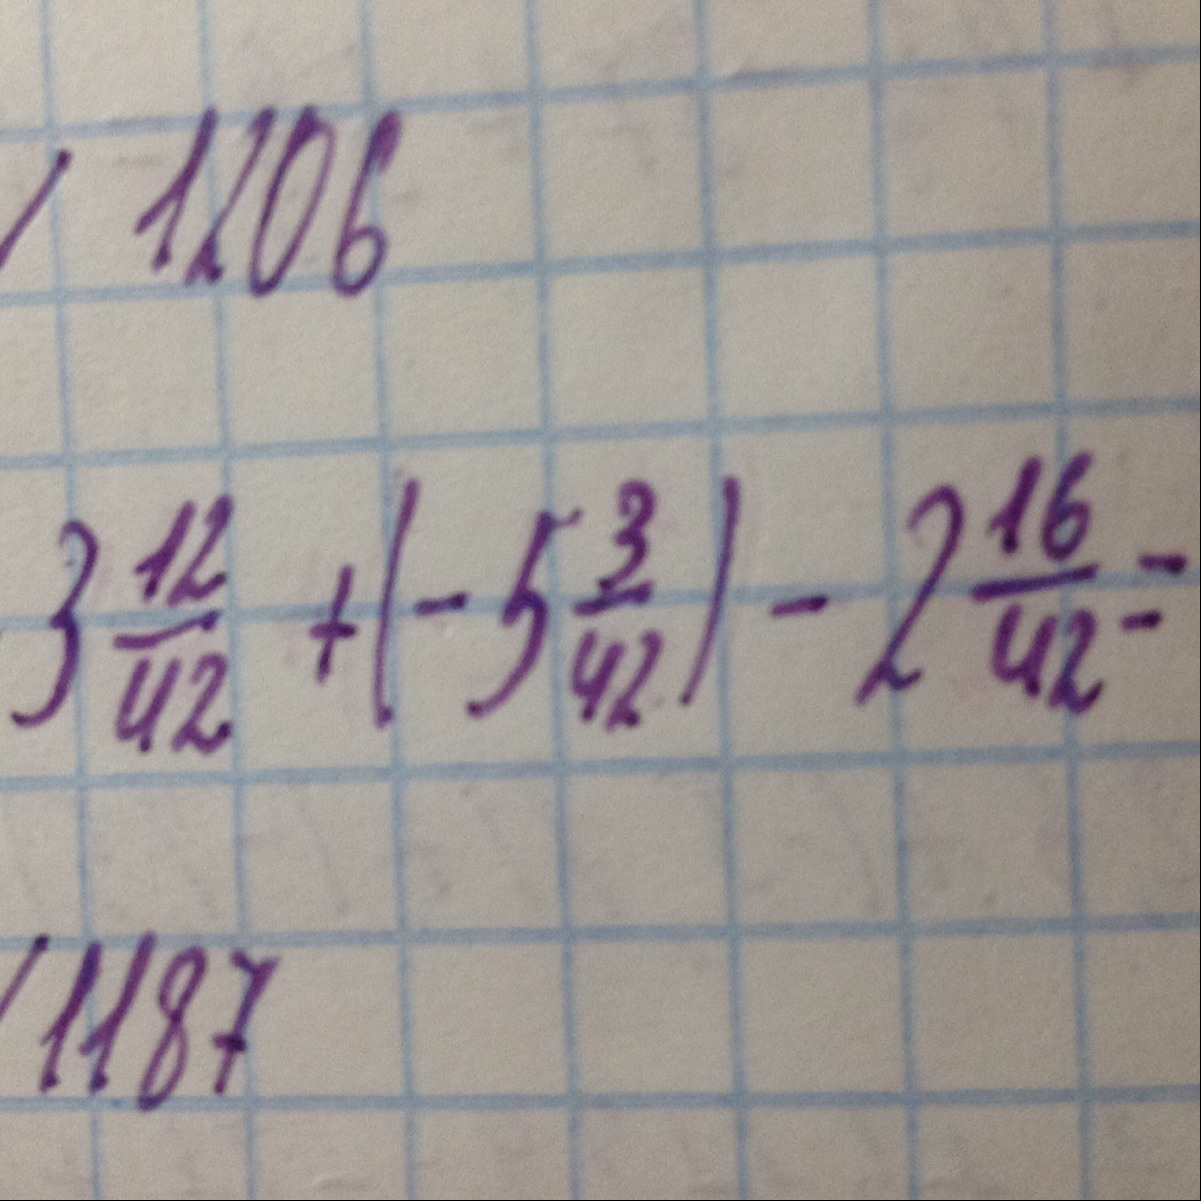 1206
3 12/42 + (- 5 3/42) - 2 16/42 =
1187